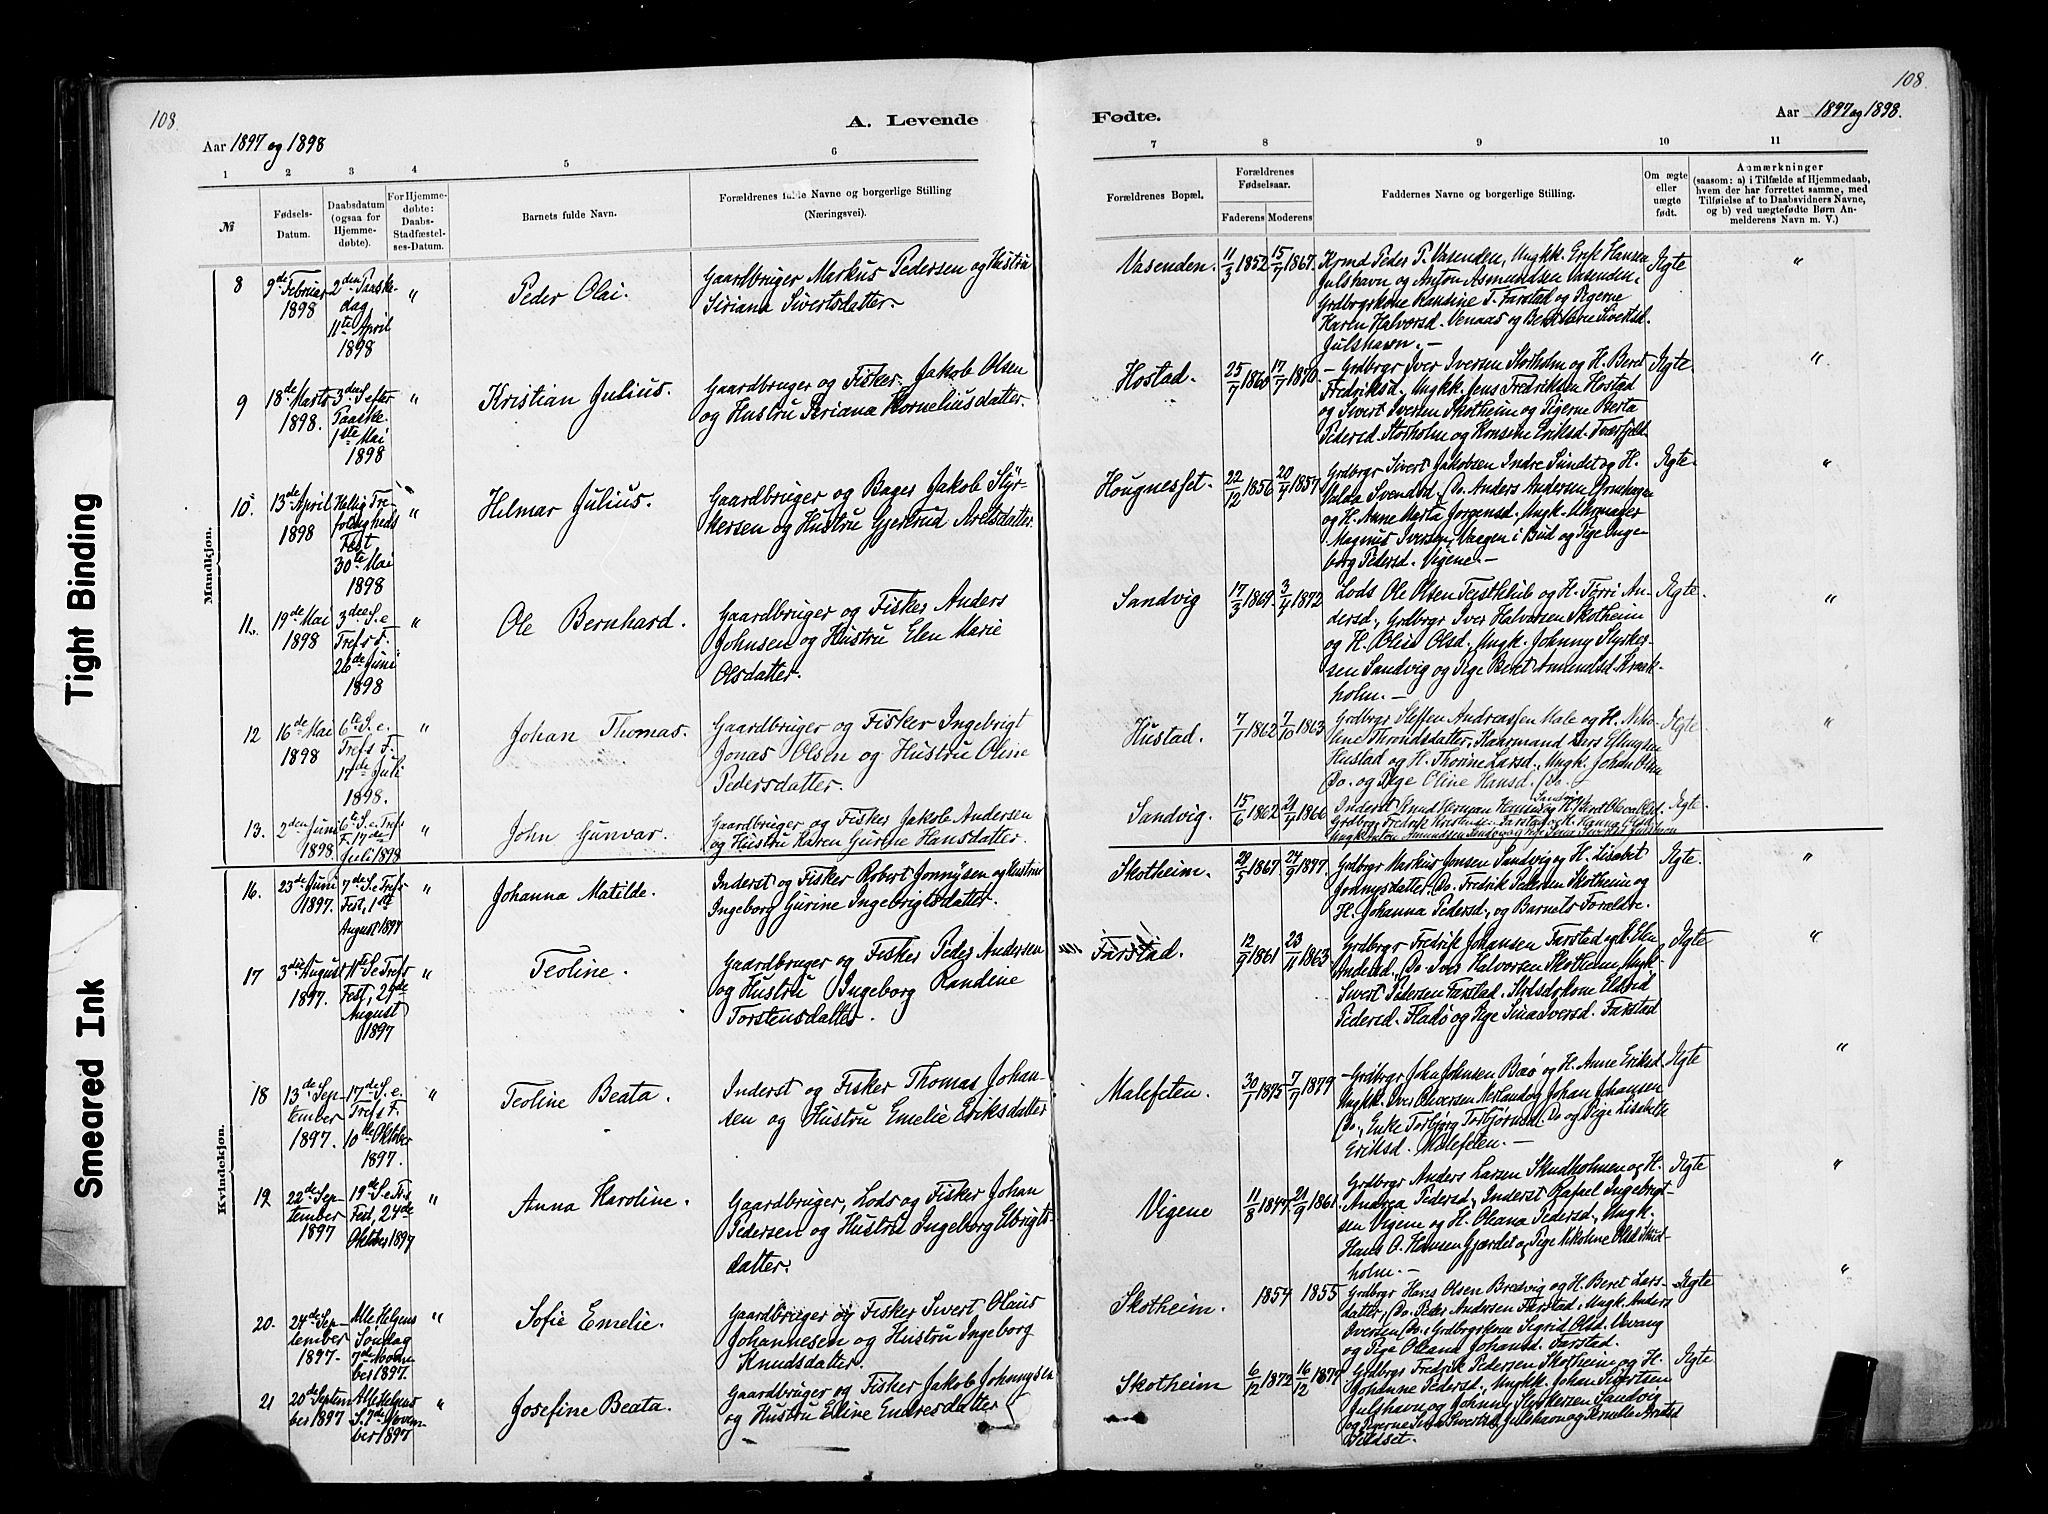 108.
108.
A. Levende
Fødte.
Aar 1897 og 1898
Aar 1897 og 1898.
1 2 3 4 5 6
7 8 9 10 11
№
Fødsels-
Datum.
Daabsdatum
(ogsaa for
Hjemme-
døbte).
For Hjemme-
døbte:
Daabs-
Stadfæstel-
ses-Datum.
Barnets fulde Navn.
Forældrenes fulde Navne og borgerlige Stilling
(Næringsvei).
Forældrenes Bopæl.
Forældrenes
Fødselsaar.
Faderens Moderens
Faddernes Navne og borgerlige Stilling.
Om ægte
eller
uægte
født.
Anmærkninger
(saasom: a) i Tilfælde af Hjemmedaab,
hvem der har forrettet samme, med
Tilføielse af to Daabsvidners Navne,
og b) ved uægtefødte Børn An-
melderens Navn m. V.)
Mandkjøn.
8
9de Februar
1898
2den Paaske-
dag
11te April
1898
"
Peder Olai.
Gaardbruger Markus Pedersen og Hustru
Siriana Sivertsdatter.
Vasenden.
11/3 1852
15/7 1867.
Krmd Peder P. Vasenden, Ungkk. Erik Hansen
Julshavn og Anton Asmundsen Vasenden,
Grdbrgrkone Randine T. Farstad og Pigerne
Karen Halvorsd. Venaas og Sivertsd.
Julshavn.
Ægte
"
9
18de Marts
1898.
3die S. efter
Paaske
1ste Mai
1898
"
Kristian Julius.
Gaardbruger og Fisker Jakob Olsen
og Hustru Periana Korneliusdatter.
Hostad.
25/7 1860
17/7 1870.
Grdbrgr Iver Iversen Storholm og H. Berit
Fredriksd., Ungkk. Jens Fredriksen Hostad
og Sivert Iversen Skotheim og Pigerne Berta
Pedersd. Storholm og Eriksd. Tverfjeld
Ægte.
"
10.
13de April
1898
Hellig Tre-
foldigheds
Fest
30te Mai
1898
"
Hilmar Julius.
Gaardbruger og Bager Jakob Styr-
kersen og Hustru Gjertrud Arelsdatter.
Hougnesset.
22/12 1856
20/4 1857.
Grdbrgr Sivert Jakobsen Indre Sundet og H.
Svendsd., Do. Anders Andersen
og H. Anne Marta Jørgensd., Ungk. Uhrmager
Magnus Iversen, Vaagen i Bud og Pige Inge-
borg Pedersd. Vigene.
Ægte
"
11.
19de Mai
1898
3die S. e
Tref s F.
26de Juni
1898
"
Ole Bernhard.
Gaardbruger og Fisker Anders
Johnsen og Hustru Elen Marie
Olsdatter.
Sandvig
17/3 1869.
3/4 1872
Lods Ole Olsen og H. Torri An-
dersd., Grdbrgr Iver Halvorsen Skotheim
og H. Olsd., Ungk. Johnny Styrker-
sen Sandvig og Pige Beret Amundsd.
holm.
Ægte.
"
12
16de Mai
1898
6te S. e.
Tref s F.
17de Juli
1898.
"
Johan Thomas.
Gaardbruger og Fisker Ingebrigt
Jonas Olsen og Hustru Oline
Pedersdatter.
Hustad.
7/1 1862
7/10 1863
Grdbrgr Steffen Andreassen Male og H. Niko-
line Throndsdatter, Kaarmand Lars
Hustad og H. Thorine Larsd., Ungk. Johan Olsen
Do. og Pige Oline Hansd. Do.
Ægte.
"
13.
2den Juni
1898.
6te S. e Tref s
F. 17de
Juli 1898
"
John Gunvar.
Gaardbruger og Fisker Jakob Andersen
og Hustru Karen Gurine Hansdatter.
Sandvig.
15/6 1862
21/4 1866
Inderst Knud Herman Sandvig
Grdbrgr Fredrik Farstad og H. Hanna
Ægte.
"
Kvindekjøn.
16.
23de Juni
1897.
7de S. e Tref s
Fest, 1ste
August 1897
"
Johanna Matilde.
Inderst og Fisker Robert Jonnysen og Hustru
Ingeborg Gurine Ingebrigtsdatter.
Skotheim.
20/5 1867
24/9 1897.
Grdbrgr Markus Jonsen Sandvig og H. Lisabet
Jonnysdatter, Do. Fredrik Pedersen Skotheim og
H. Johanna Pedersd., og Barnets Forældre.
Ægte
"
17
3die August
1897.
11te S. e Tref s
Fest, 29de
August
1897
"
Teoline.
Gaardbruger og Fisker Peder Andersen
og Hustru Ingeborg Randine
Torstensdatter.
Farstad.
12/9 1861
23/4 1863.
Grdbrgr Fredrik Johansen Farstad og H. Elen
Andersd., Do. Iver Halvorsen Skotheim, Ungk.
Sivert Pedersen Farstad. Skolsdrkone Eldrid
Pedersd. Fladø og Pige Sina Iversd. Farstad
Ægte
"
18
13de Sep-
tember
1897.
17de S. e.
Tref s F.
10de Oktober
1897.
"
Teoline Beata.
Inderst og Fisker Thomas Johan-
sen og Hustru Emelie Eriksdatter
Malefeten.
30/1 1875
7/9 1879
Grdbrgr John Johnsen Bøø og H. Anne Eriksd.
Ungkk. Iver Oliversen Nerland og Johan Johansen
Do., Enke Torbjørg Torbjørnsd. Do og Pige Lisabette
Eriksd. Malefeten.
Ægte
"
19
22de Sep-
tember
1897
19de S. e Tr. s
Fest, 24de
Oktober 1897
"
Anna Karoline.
Gaardbruger, Lods og Fisker Johan
Pedersen og Hustru Ingeborg Elbrigts-
datter.
Vigene
11/8 1847.
21/9 1861.
Grdbrgr Anders Larsen Skudholmen og H.
Andrea Pedersd., Inderst Rafael Ingebrigt-
sen Vigene og H. Oleana Pedersd., Ungk.
Hans O. Hansen Gjærdet og Pige Olsd. Skud-
holm.
Ægte
"
20.
24de Sep-
tember
1897.
Alle Helgens
Søndag
7de Novem-
ber 1897.
"
Sofie Emelie.
Gaardbruger og Fisker Sivert Olaus
Johannesen og Hustru Ingeborg
Knudsdatter.
Skotheim.
1854
1855
Grdbrgr Hans Olsen Bredvig og H. Beret Lars-
datter, Do. Peder Andersen Farstad, Ungk. Anders
Iversen, Do., Grdbrgrkone Sigrid Olsd. Urvang
og Pige Oleana Johansd. Farstad.
Ægte
"
21
20de Septem
ber 1897
Alle Helgens
S. 7de Novem-
ber 1897
"
Josefine Beata.
Gaardbruger og Fisker Jakob Johnnysen
og Hustru Elline Endresdatter
Skotheim
6/12 1872
16/12 1877
Grdbrgr Fredrik Pedersen Skotheim og H.
Johanne Pedersd., Ungkk. Johan Sivertsen
Julshavn og Johnny Styrkersen Sandvig
og Pigerne Sivertsd. Julshavn og Pernelle Arntsd
Sildset.
Ægte
Tight Binding
Smeared Ink